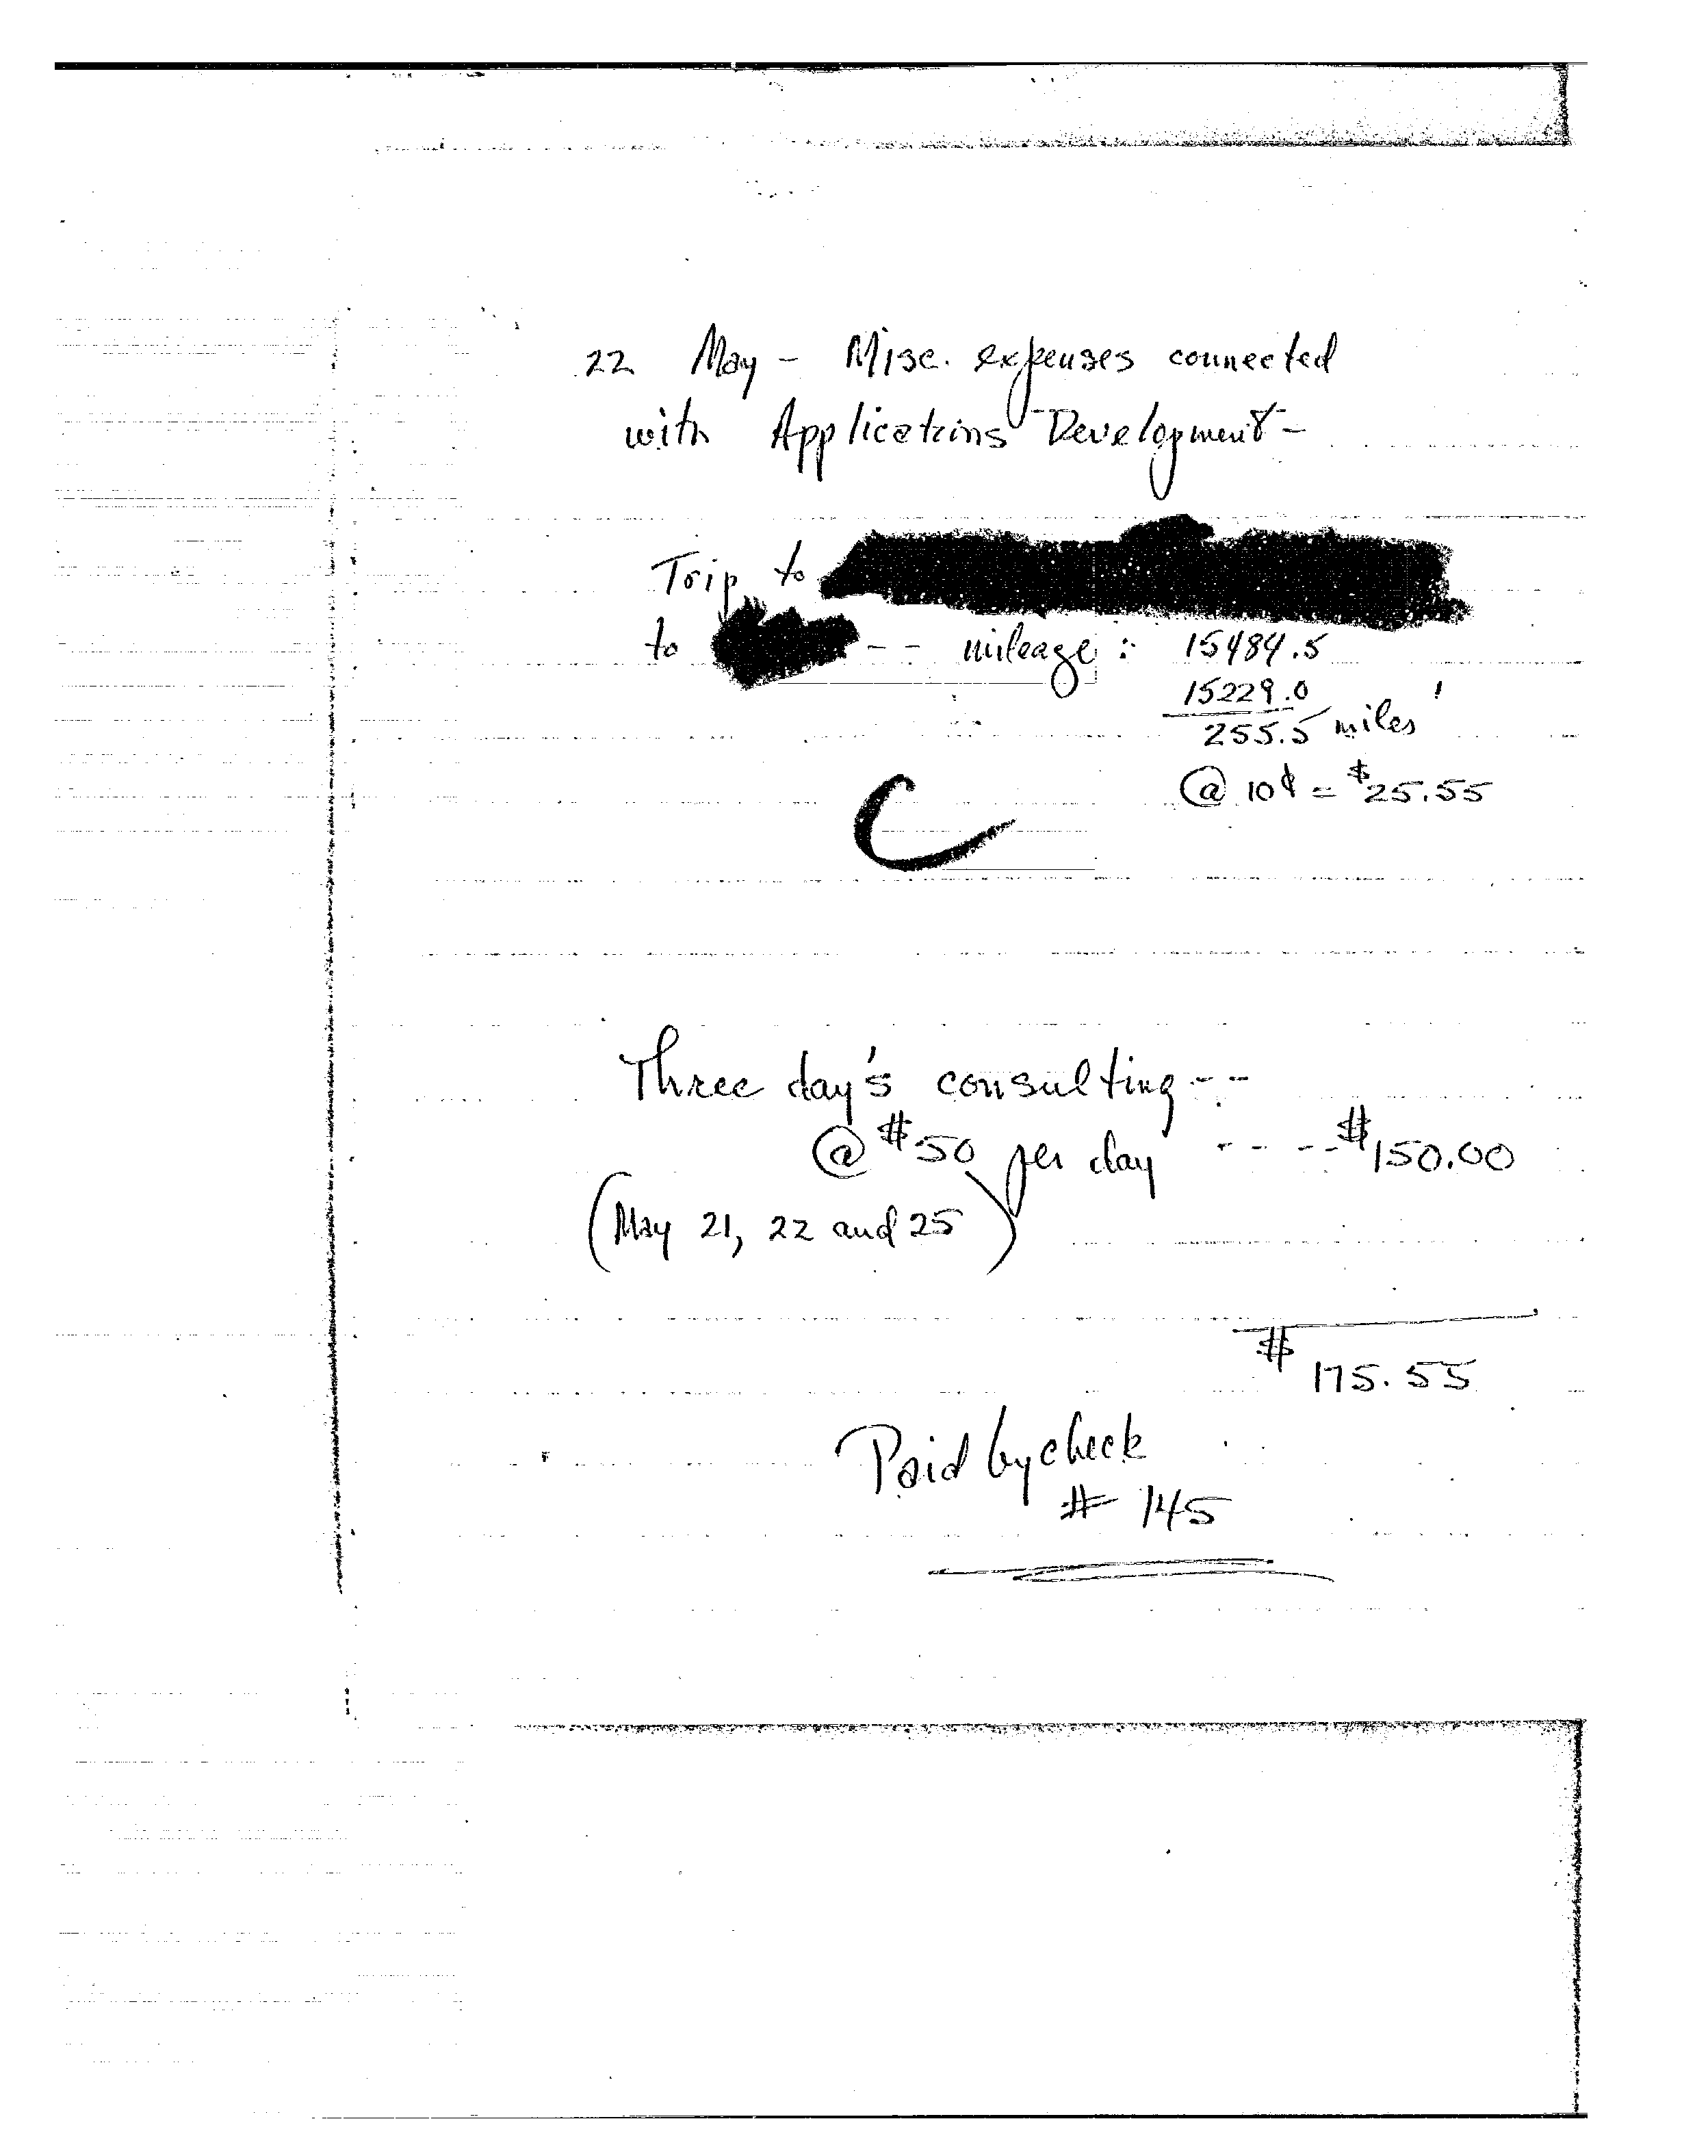 22 May - Misc. expenses connected
with Applications Development -
Trip to
to -- mileage: 15484.5
15229.0
255.5 miles
@ 10¢ = $25.55
C
Three day's consulting --
@ $50 per day ---- $150.00
(May 21, 22 and 25)
$175.55
Paid by check
# 145